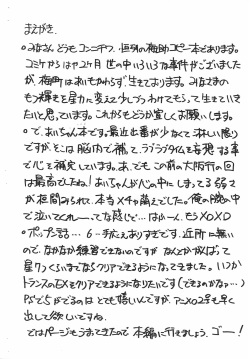 まえがき.
○みなさん どうも コンニチワ. 毎度の梅助コピー本であります。
コミケからはや2ヶ月 世の中いろいろな事件がございました
が 梅町はあいもかわらず 生きております。みなさまの
もつ輝きを星力に変えて少しづつわけてもらって生きていき
たいと思っています。これからもどうか宜しくお願いします。
○で、あいちゃん本です。最近出番が少なくて淋しい限り
ですが そこは脳内で補って、ラブラブライフを妄想する事
で心を補完しています。あ、でもこの前の大阪行の回
は最高でしたね! あいちゃんが心の中にしまってる弱さ
が垣間みられて、本当メチャ萌えでした。俺の腕の中
で泣いてくれーってな感じで…はかーん、もうXOXO
○ポップンさる… 6一手がとまりそうです。近所に無い
ので、なかなか練習できないのですが なんとかがんばって
星7つくらいまでならクリアできるようになってきました。いつか
トランスのEXをクリアできるようになりたいです(できるのかな…)
PSで5がでるのは とても嬉しいんですが、アニメの2号も早く
出して欲しいですね。
ではページもうまってきたので 本編に行きましょう、ゴー!